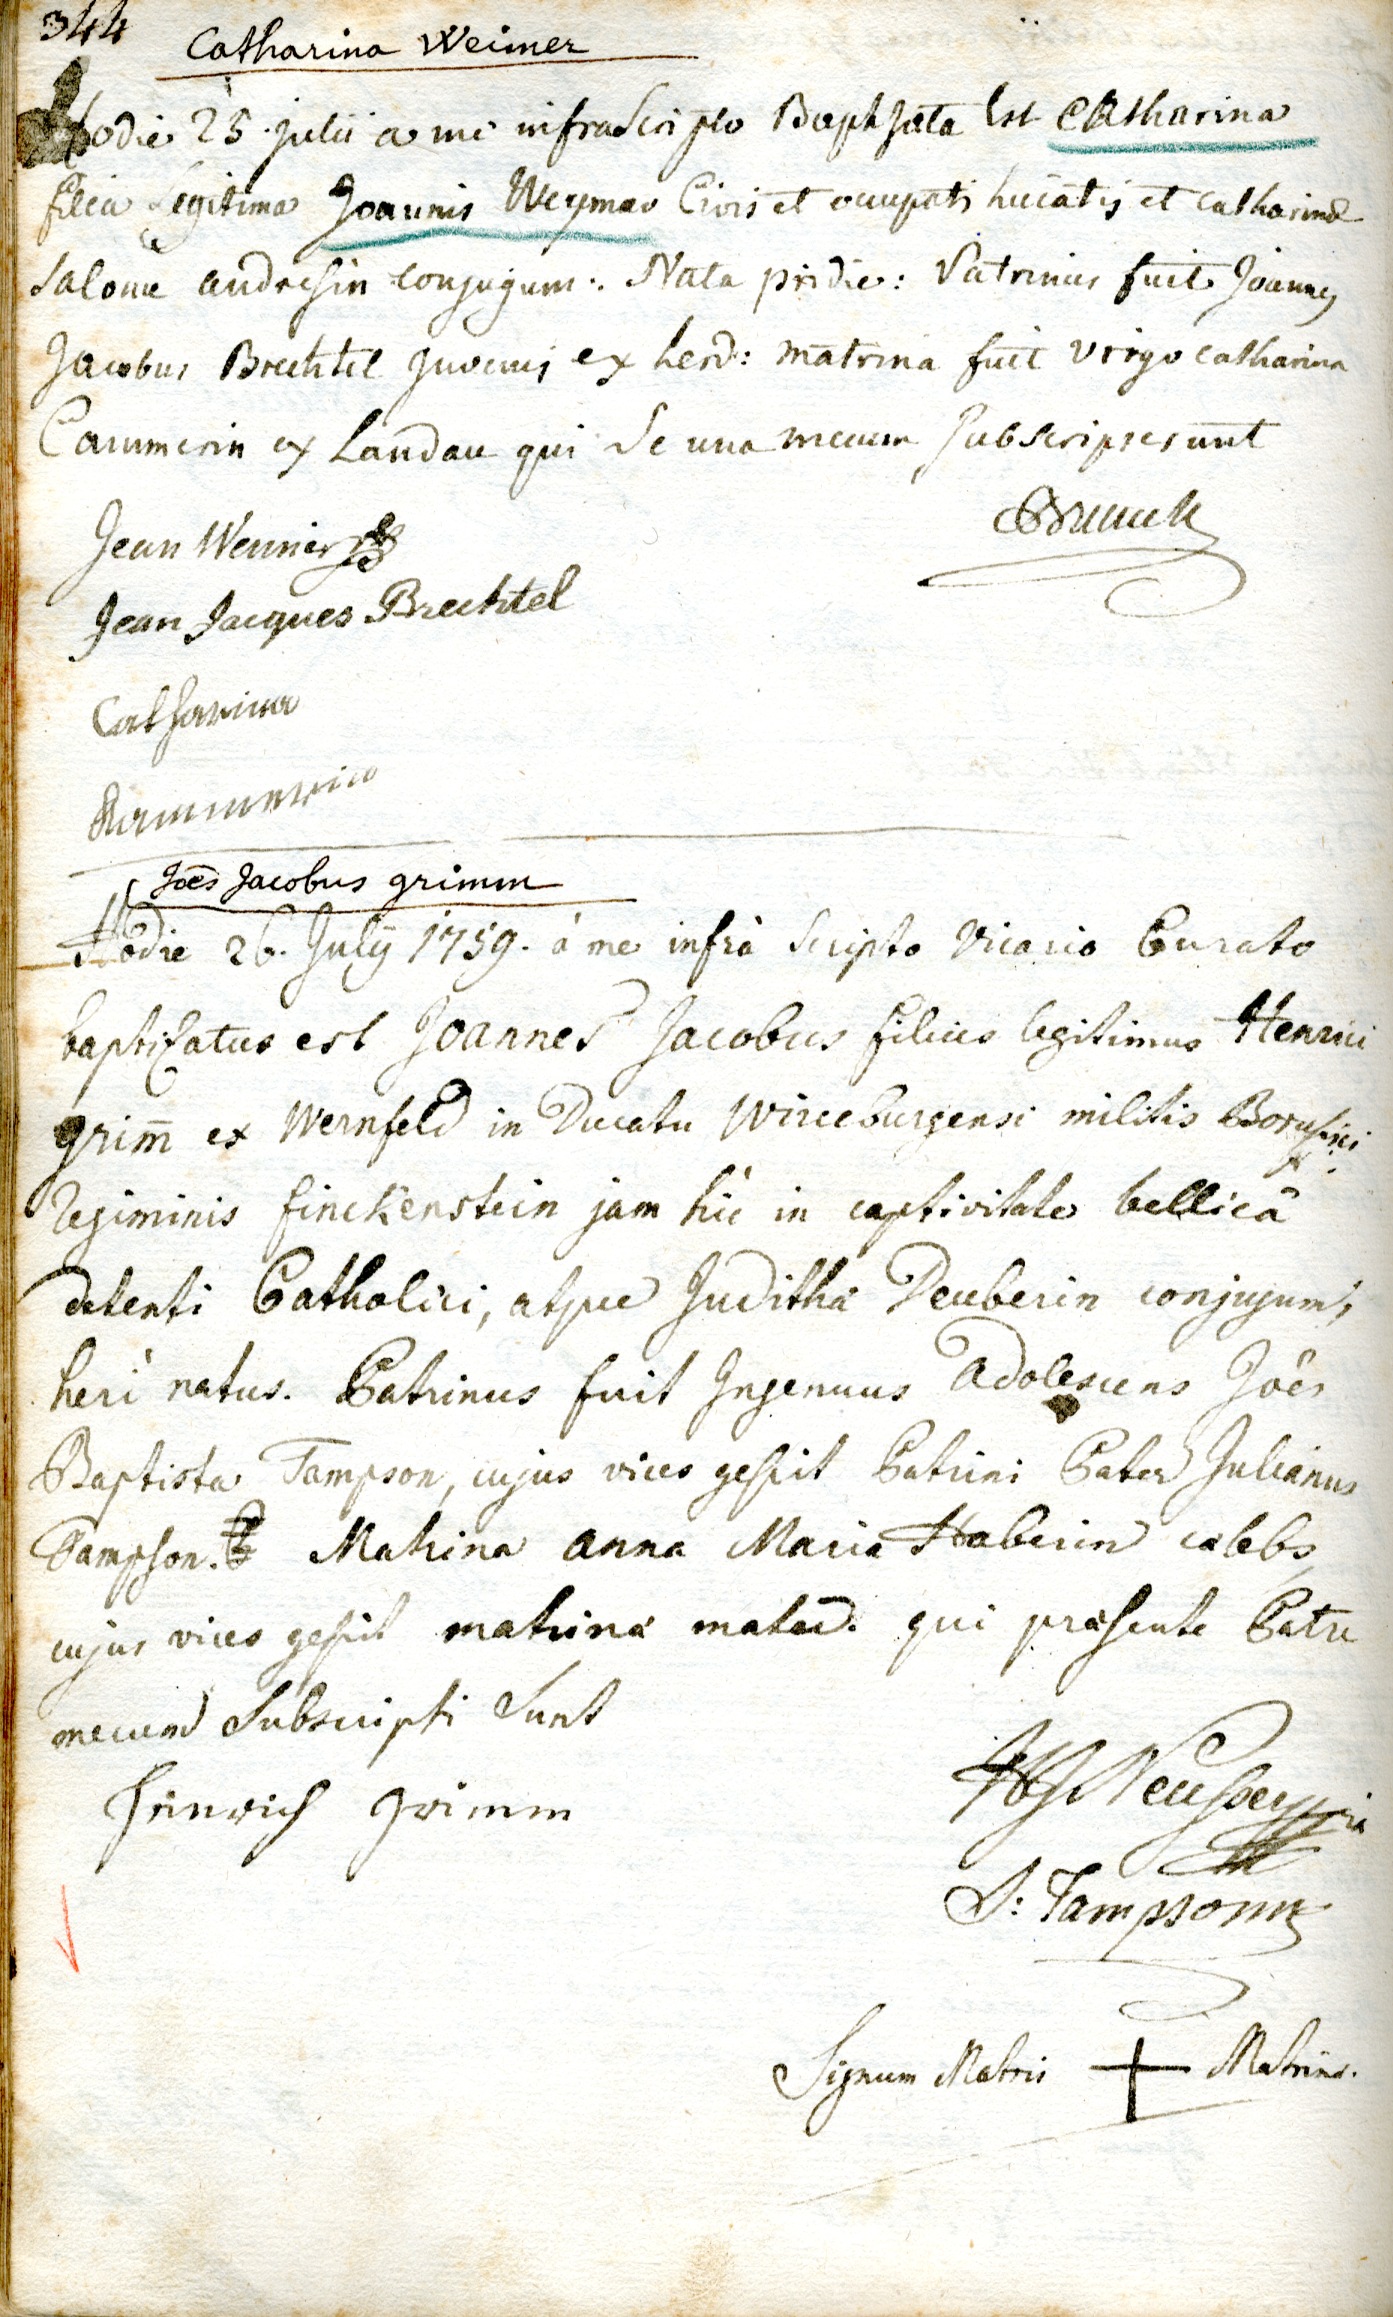 344
Catharina Weimer
hodie 25 julii a me infrascripto Baptizata Est Catharina
filia Legitima Joannis Weymar Civis et hucatis et Catharinæ
Salome andresin conjugum. Nata pridie: Patrinus fuit Joannes
Jacobus Brechtel Juvenis ex herd: matrina fuit virgo catharina
Cammerin ex Landau qui se una mecum subscripserunt
Brunck
Jean Weimer
Jean Jacques Brechtel
Catharina
Kammerrin
Joēs Jacobus grimm
Hodie 26. July 1759. à me infrà scripto Vicario Curato
baptisatus est Joannes Jacobus filius legitimus Henrici
grim̄ ex Wernfeld in Ducatu Wirceburgensi militis Borussici
Regiminis finckenstein jam hic in captivitate bellicâ
detenti Catholici, atque Juditha Deuberin conjugum,
heri natus. Patrinus fuit Ingenuus adolescens Joês
Baptista Tampson, cujus vices gessit Patrini Pater Julianus
Tampson. Matrina anna Maria Haberin cælebs,
cujus vices gessit matrinæ mater. qui præsente Patre
mecum Subscripti Sunt
Heinrich Grimm
J: Tampsonn
Signum Matris + Matrinæ.